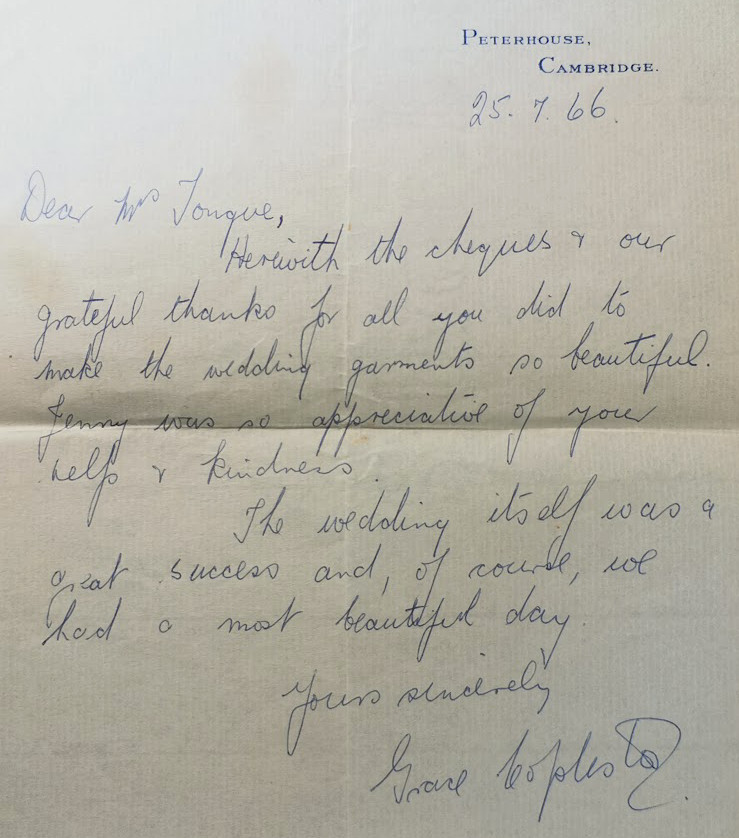 PETERHOUSE,
CAMBRIDGE.
25. 7. 66.
Dear Mrs Tongue,
Herewith the cheques & our
grateful thanks for all you did to
make the wedding garments so beautiful.
Jenny was so appreciative of your
help & kindness.
The wedding itself was a
great success and, of course, we
had a most beautiful day.
Yours sincerely
Grace